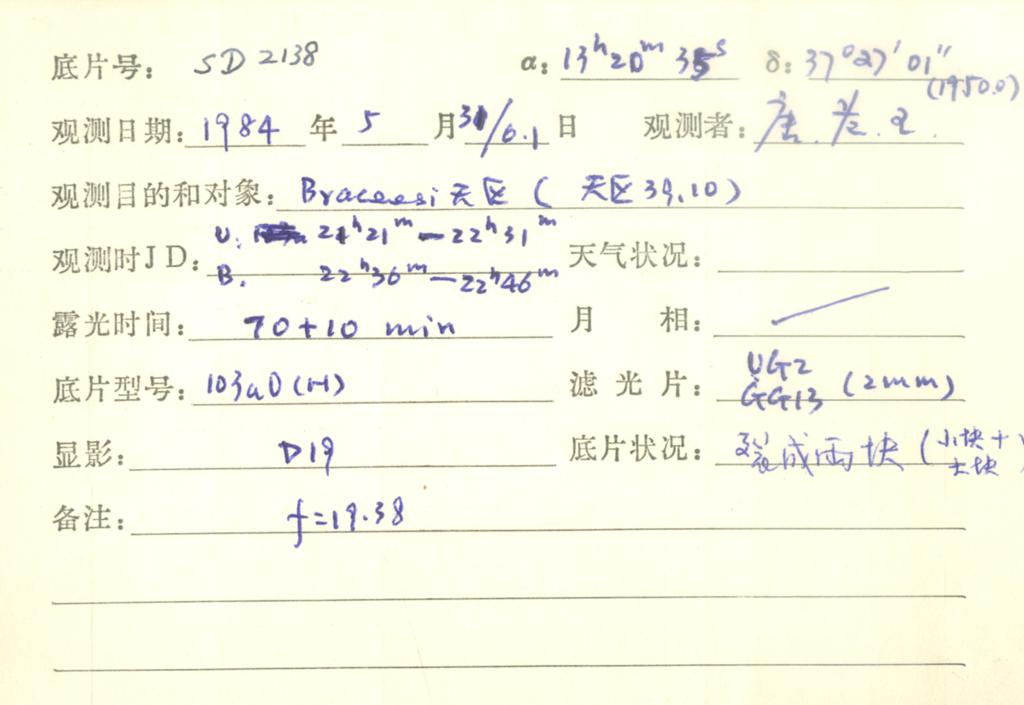 底片号: SD2138 α: 13ʰ20ᵐ35ˢ δ: 37°27′01″
(1950.0)
观测日期: 1984 年 5 月 31/6.1 日 观测者: 唐
观测目的和对象: Braccesi天区 ( 天区39,10)
观测时JD: U: 21ʰ21ᵐ—22ʰ31ᵐ 天气状况:
B. 22ʰ36ᵐ—22ʰ46ᵐ
露光时间: 70+10 min 月 相:
底片型号: 103aO(H) 滤光片: UG2 GG13 (2mm)
显影: D19 底片状况: 裂成两块 (小块+大块)
备注: f=19.38